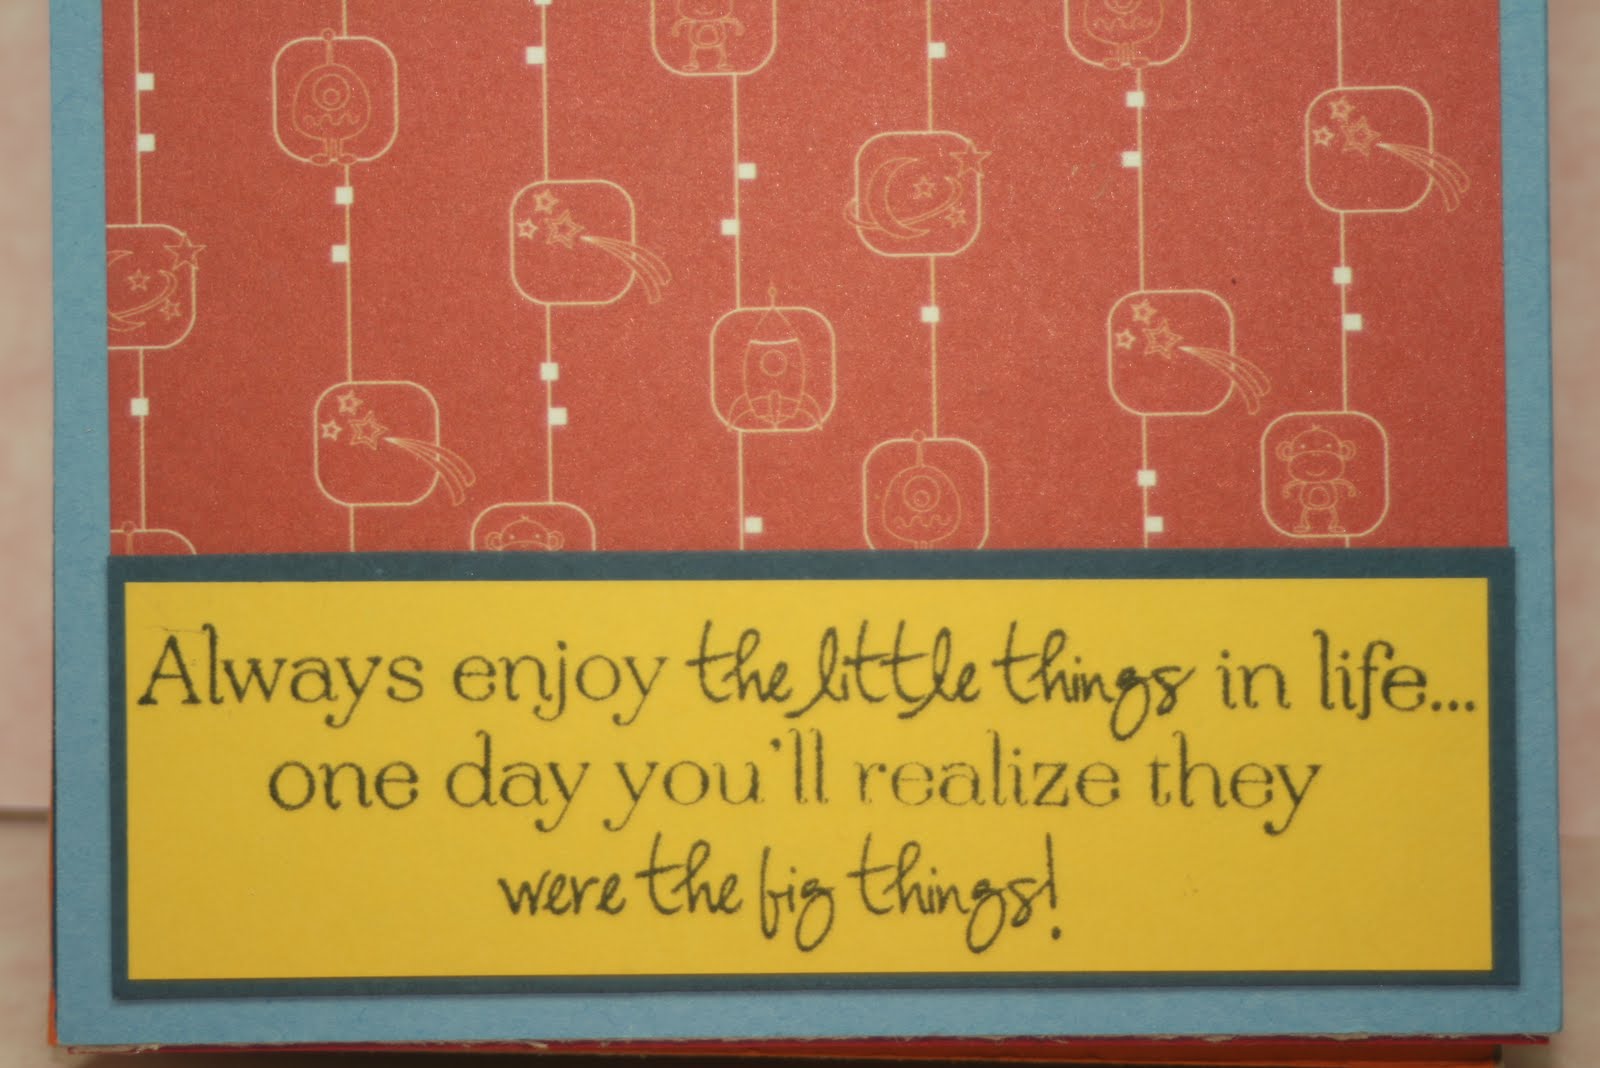 Always enjoy the little things in life...
one day you'll realize they
were the big things!